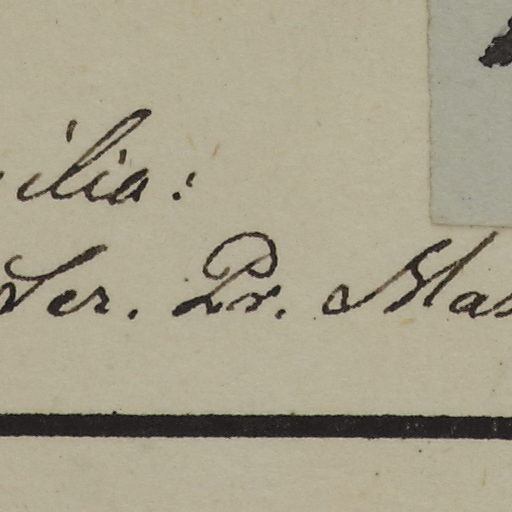 ilia:
Ser. Pr. Mas